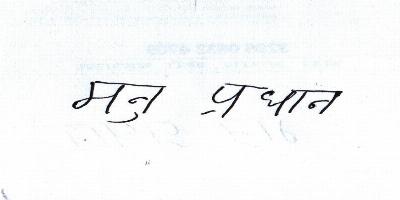 मनु प्रधान